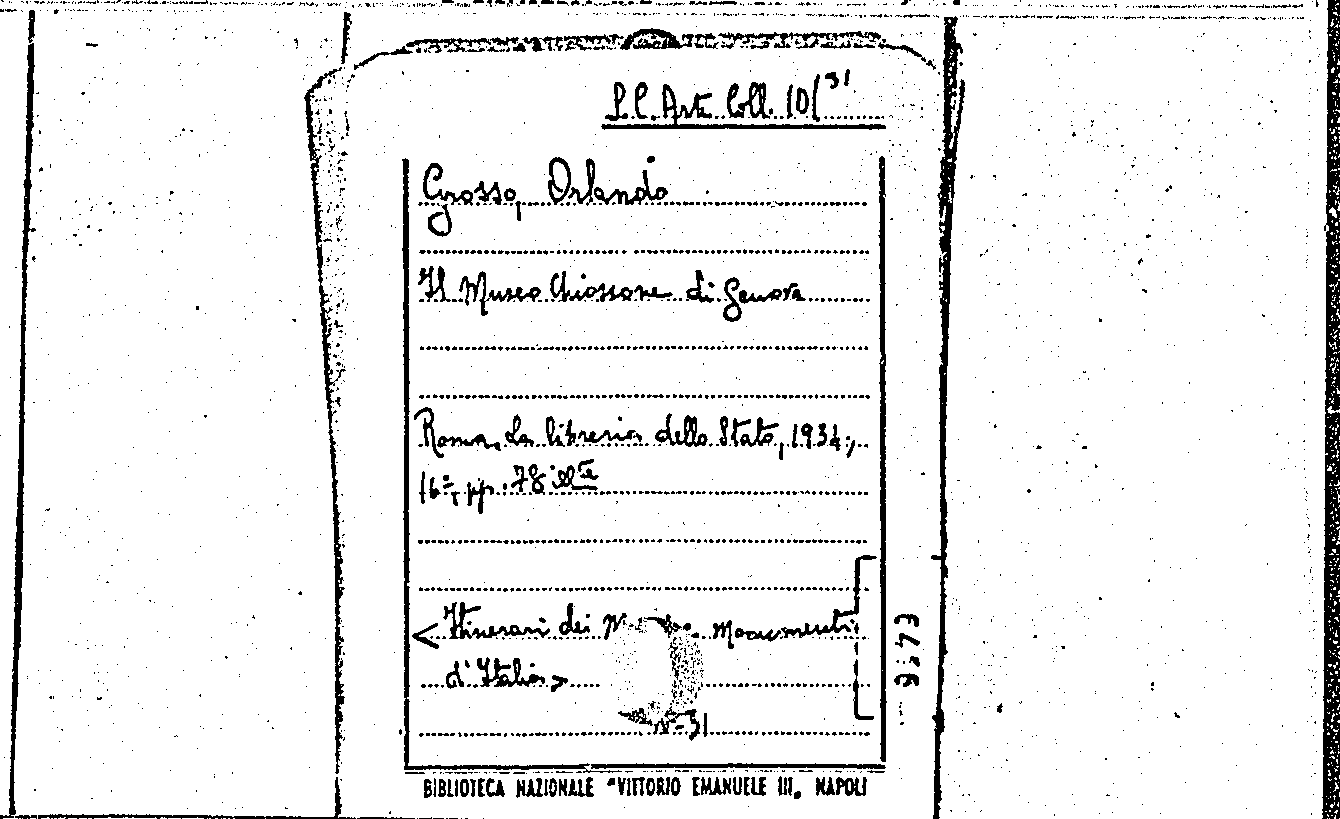 S.C. Arte Coll. 10/31
Grosso, Orlando
Il Museo Chiossone di Genova
Roma, La libreria dello Stato, 1934;
16°, pp. 78 illte
<Itinerari dei Monumenti
d'Italia>
N-31
BIBLIOTECA NAZIONALE "VITTORIO EMANUELE III„ NAPOLI